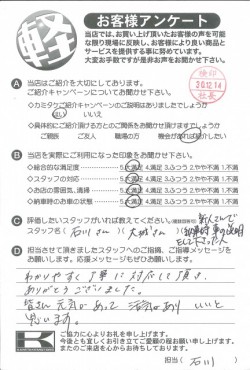 軽
お客様アンケート
当店では、お買い上げ頂いたお客様の声を可能
な限り現場に反映し、お客様により良い商品と
サービスを提供する事に努めています。
大変お手数ですが是非お声をお聞かせ下さい。
検印
20.12.14
社長
A 当店はご紹介を大切にしております。
ご紹介キャンペーンについてお聞かせ下さい。
◇カミタケご紹介キャンペーンのご説明はありましたでしょうか
はい いいえ
◇具体的にご紹介頂ける方とのご関係をお聞かせ頂けますでしょうか
ご親戚 ご友人 職場の方 機会があれば紹介したい
B 当店を実際にご利用になった印象をお聞かせ下さい。
◇総合的な満足度 5.大満足 4.満足 3.ふつう 2.やや不満 1.不満
◇スタッフの対応 5.大満足 4.満足 3.ふつう 2.やや不満 1.不満
◇お店の雰囲気、清掃 5.大満足 4.満足 3.ふつう 2.やや不満 1.不満
◇納車時のお車の状態 5.大満足 4.満足 3.ふつう 2.やや不満 1.不満
C 評価したいスタッフがいれば教えてください。(複数回答可)
スタッフ名( 石川さん )( 大城さん )(
納車時 車の説明
D 担当させて頂きましたスタッフへのご指導、ご指導メッセージを
お願いします。応援メッセージもぜひお願いします。
わかりやすく丁寧に対応して頂き、
ありがとうございました。
皆さん元気があって 活気があり いいと
思います。
ご協力に心よりお礼を申し上げます。
今後とも宜しくお引き立てご愛顧の程お願い申し上げます。
またのご来店を心からお待ちしております。
担当( 石川 )